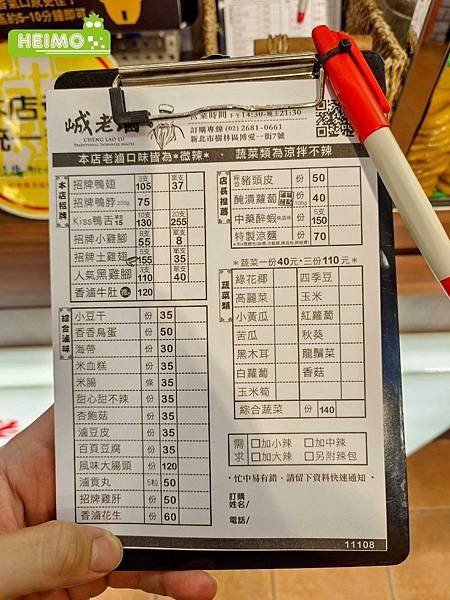 HEIMO
城老滷
CHENG LAO LU
TRADITIONAL TAIWANESE SNACKS
營業時間 下午14:30-晚上21:30
訂購專線 (02) 2681-0661
新北市樹林區博愛一街7號
本店老滷口味皆為*微辣* · 蔬菜類為涼拌不辣
本店招牌
招牌鴨翅 3支 105 單支 37
招牌鴨脖 200g 75
Kiss鴨舌 單支 15 10支 130 20支 255
招牌小雞腳 8支 55 單支 8
招牌土雞翅 5支 155 單支 35
人氣黑雞腳 3支 110 單支 40
香滷牛肚 120
綜合滷味
小豆干 份 35
香香鳥蛋 份 50
海帶 份 30
米血糕 份 35
米腸 條 35
甜心甜不辣 份 35
杏鮑菇 份 35
滷豆皮 份 35
百頁豆腐 份 35
風味大腸頭 份 120
滷貢丸 5粒 50
招牌雞肝 份 50
香滷花生 份 60
店長推薦
豬頭皮 份 50
醃漬蘿蔔 40
中藥醉蝦 150
特製涼麵 份 70
*蔬菜一份40元·三份110元*
蔬菜類
綠花椰 四季豆
高麗菜 玉米
小黃瓜 紅蘿蔔
苦瓜 秋葵
黑木耳 龍鬚菜
白蘿蔔 香菇
玉米筍
綜合蔬菜 份 140
需求 □加小辣 □加中辣
□加大辣 □另附辣包
·忙中易有錯，請留下資料快速通知·
訂購
姓名/
電話/
11108